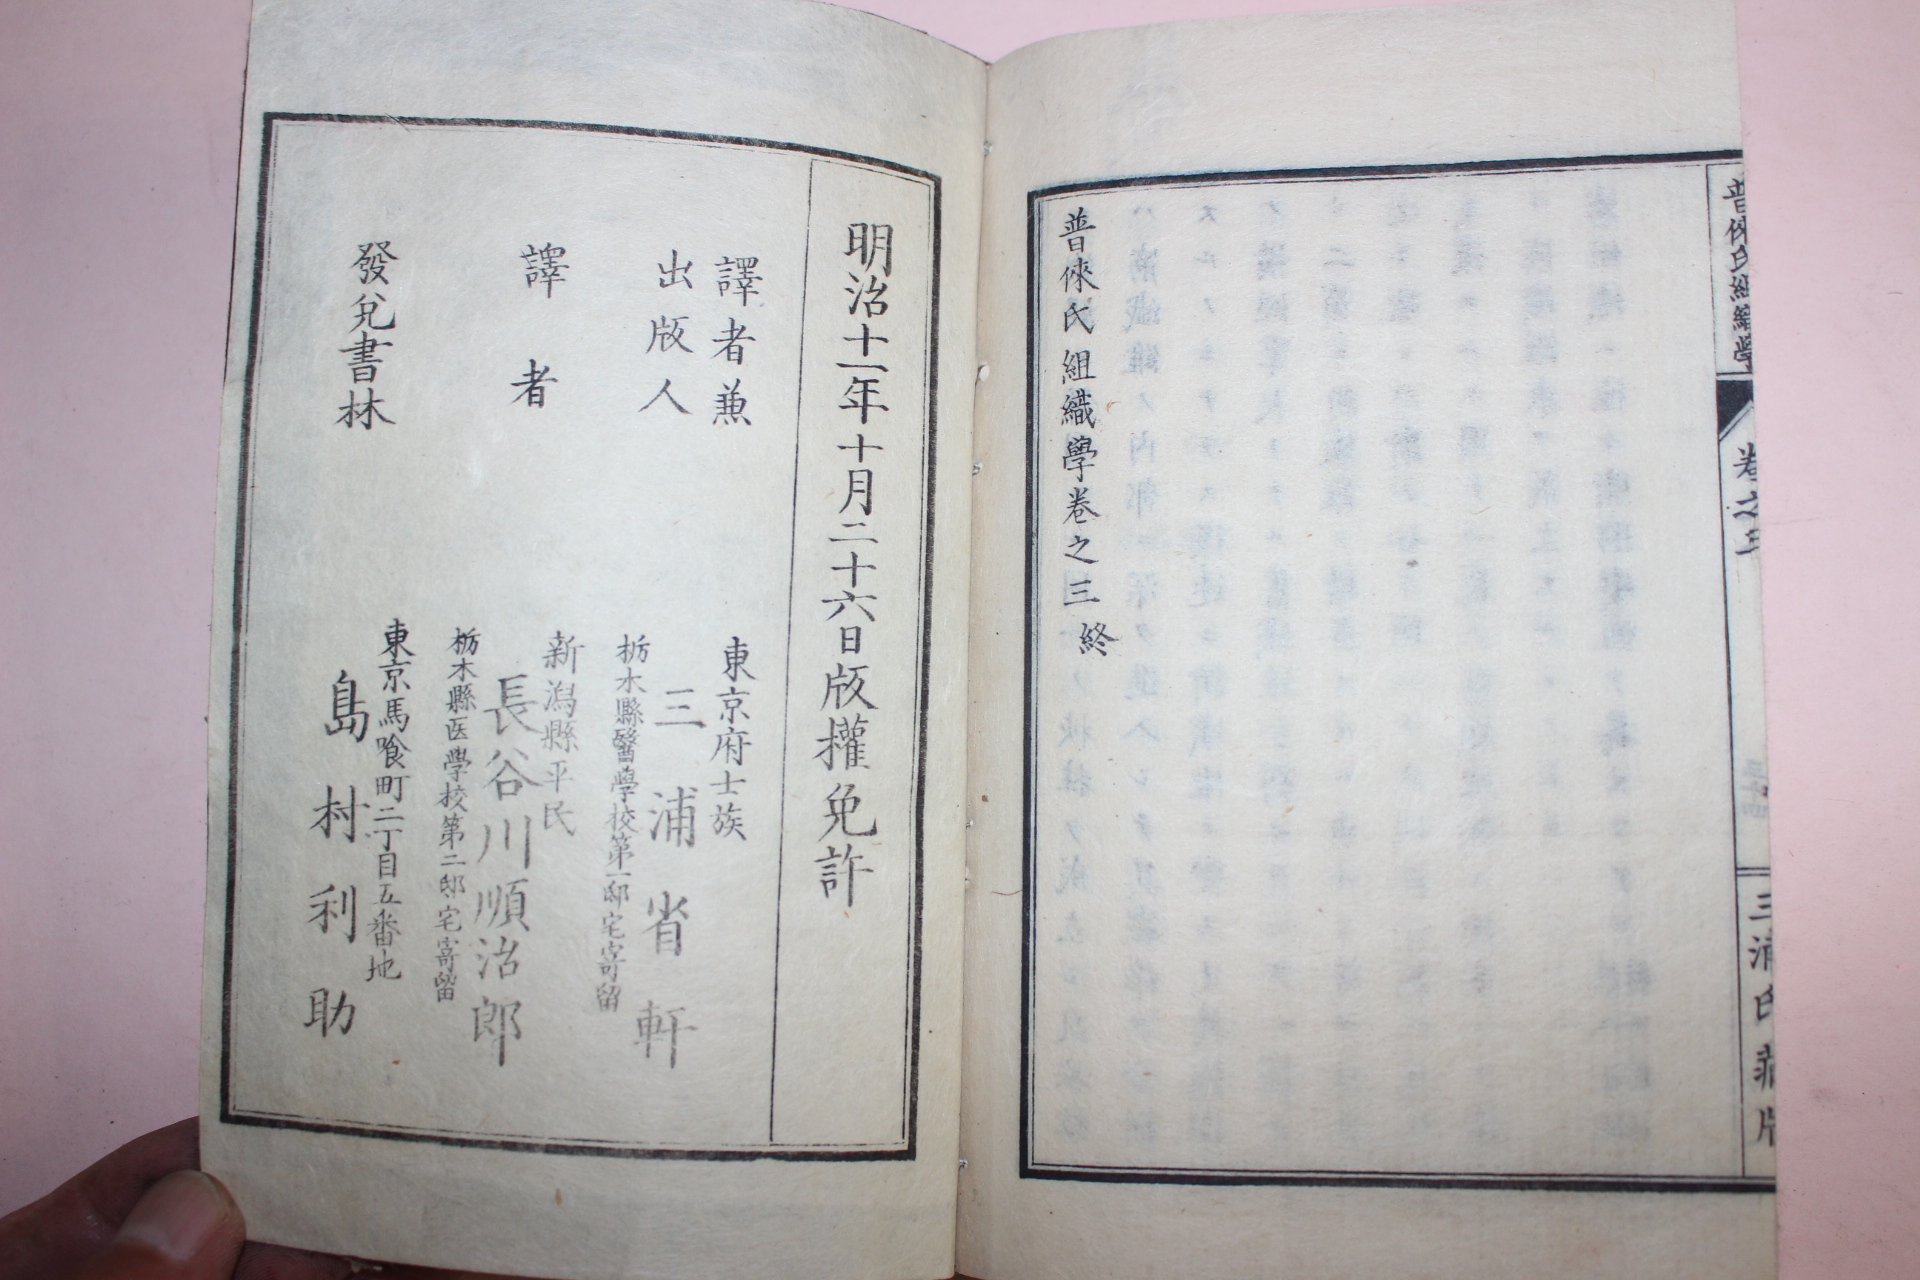 普倈氏組織學
卷之三
三浦氏藏版
普倈氏組織學卷之三終
明治十一年十月二十六日版權免許
譯者兼
出版人
東京府士族
三浦省軒
栃木縣醫學校第一邸宅寄留
譯者
新潟縣平民
長谷川順治郎
栃木縣医学校第二邸宅寄留
發兌書林
東京馬喰町二丁目五番地
島村利助